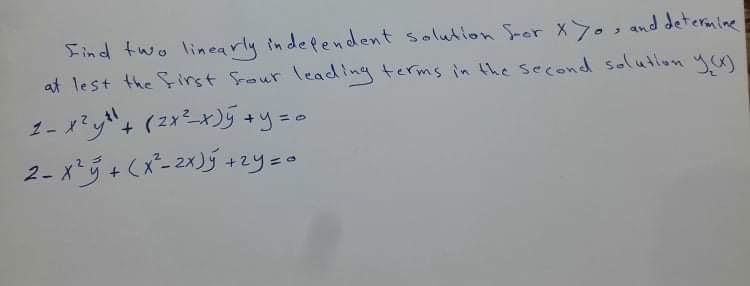 Find two linearly independent solution for x>0, and determine
at lest the first four leading terms in the second solution y₂(x)
1- x²y'' + (2x²-x)y' + y = 0
2- x²y'' + (x²-2x)y' + 2y = 0